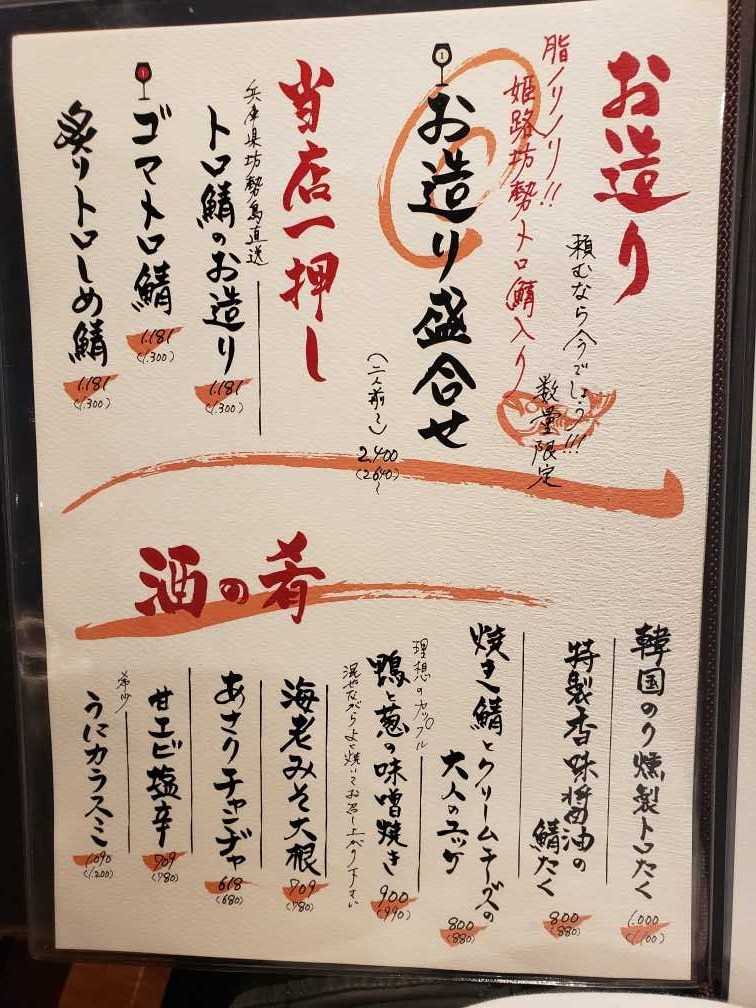 お造り
頼むなら今でしょう!!!
数量限定
脂ノリノリ!!
姫路坊勢トロ鯖入り
1
お造り盛合せ
(二人前〜)
2.400
(2.640)〜
当店一押し
兵庫県坊勢島直送
トロ鯖のお造り
1.181
(1.300)
1
ゴマトロ鯖
1.181
(1.300)
炙りトロしめ鯖
1.181
(1.300)
酒の肴
韓国のり燻製トロたく
1.000
(1.100)
特製香味醤油の
鯖たく
800
(880)
焼き鯖とクリームチーズの
大人のユッケ
800
(880)
理想のカップル
鴨と葱の味噌焼き
混ぜながらよく焼いてお召し上がり下さい
900
(990)
海老みそ大根
709
(780)
あさりチャンヂャ
618
(680)
甘エビ塩辛
709
(780)
希少
うにカラスミ
1.090
(1.200)